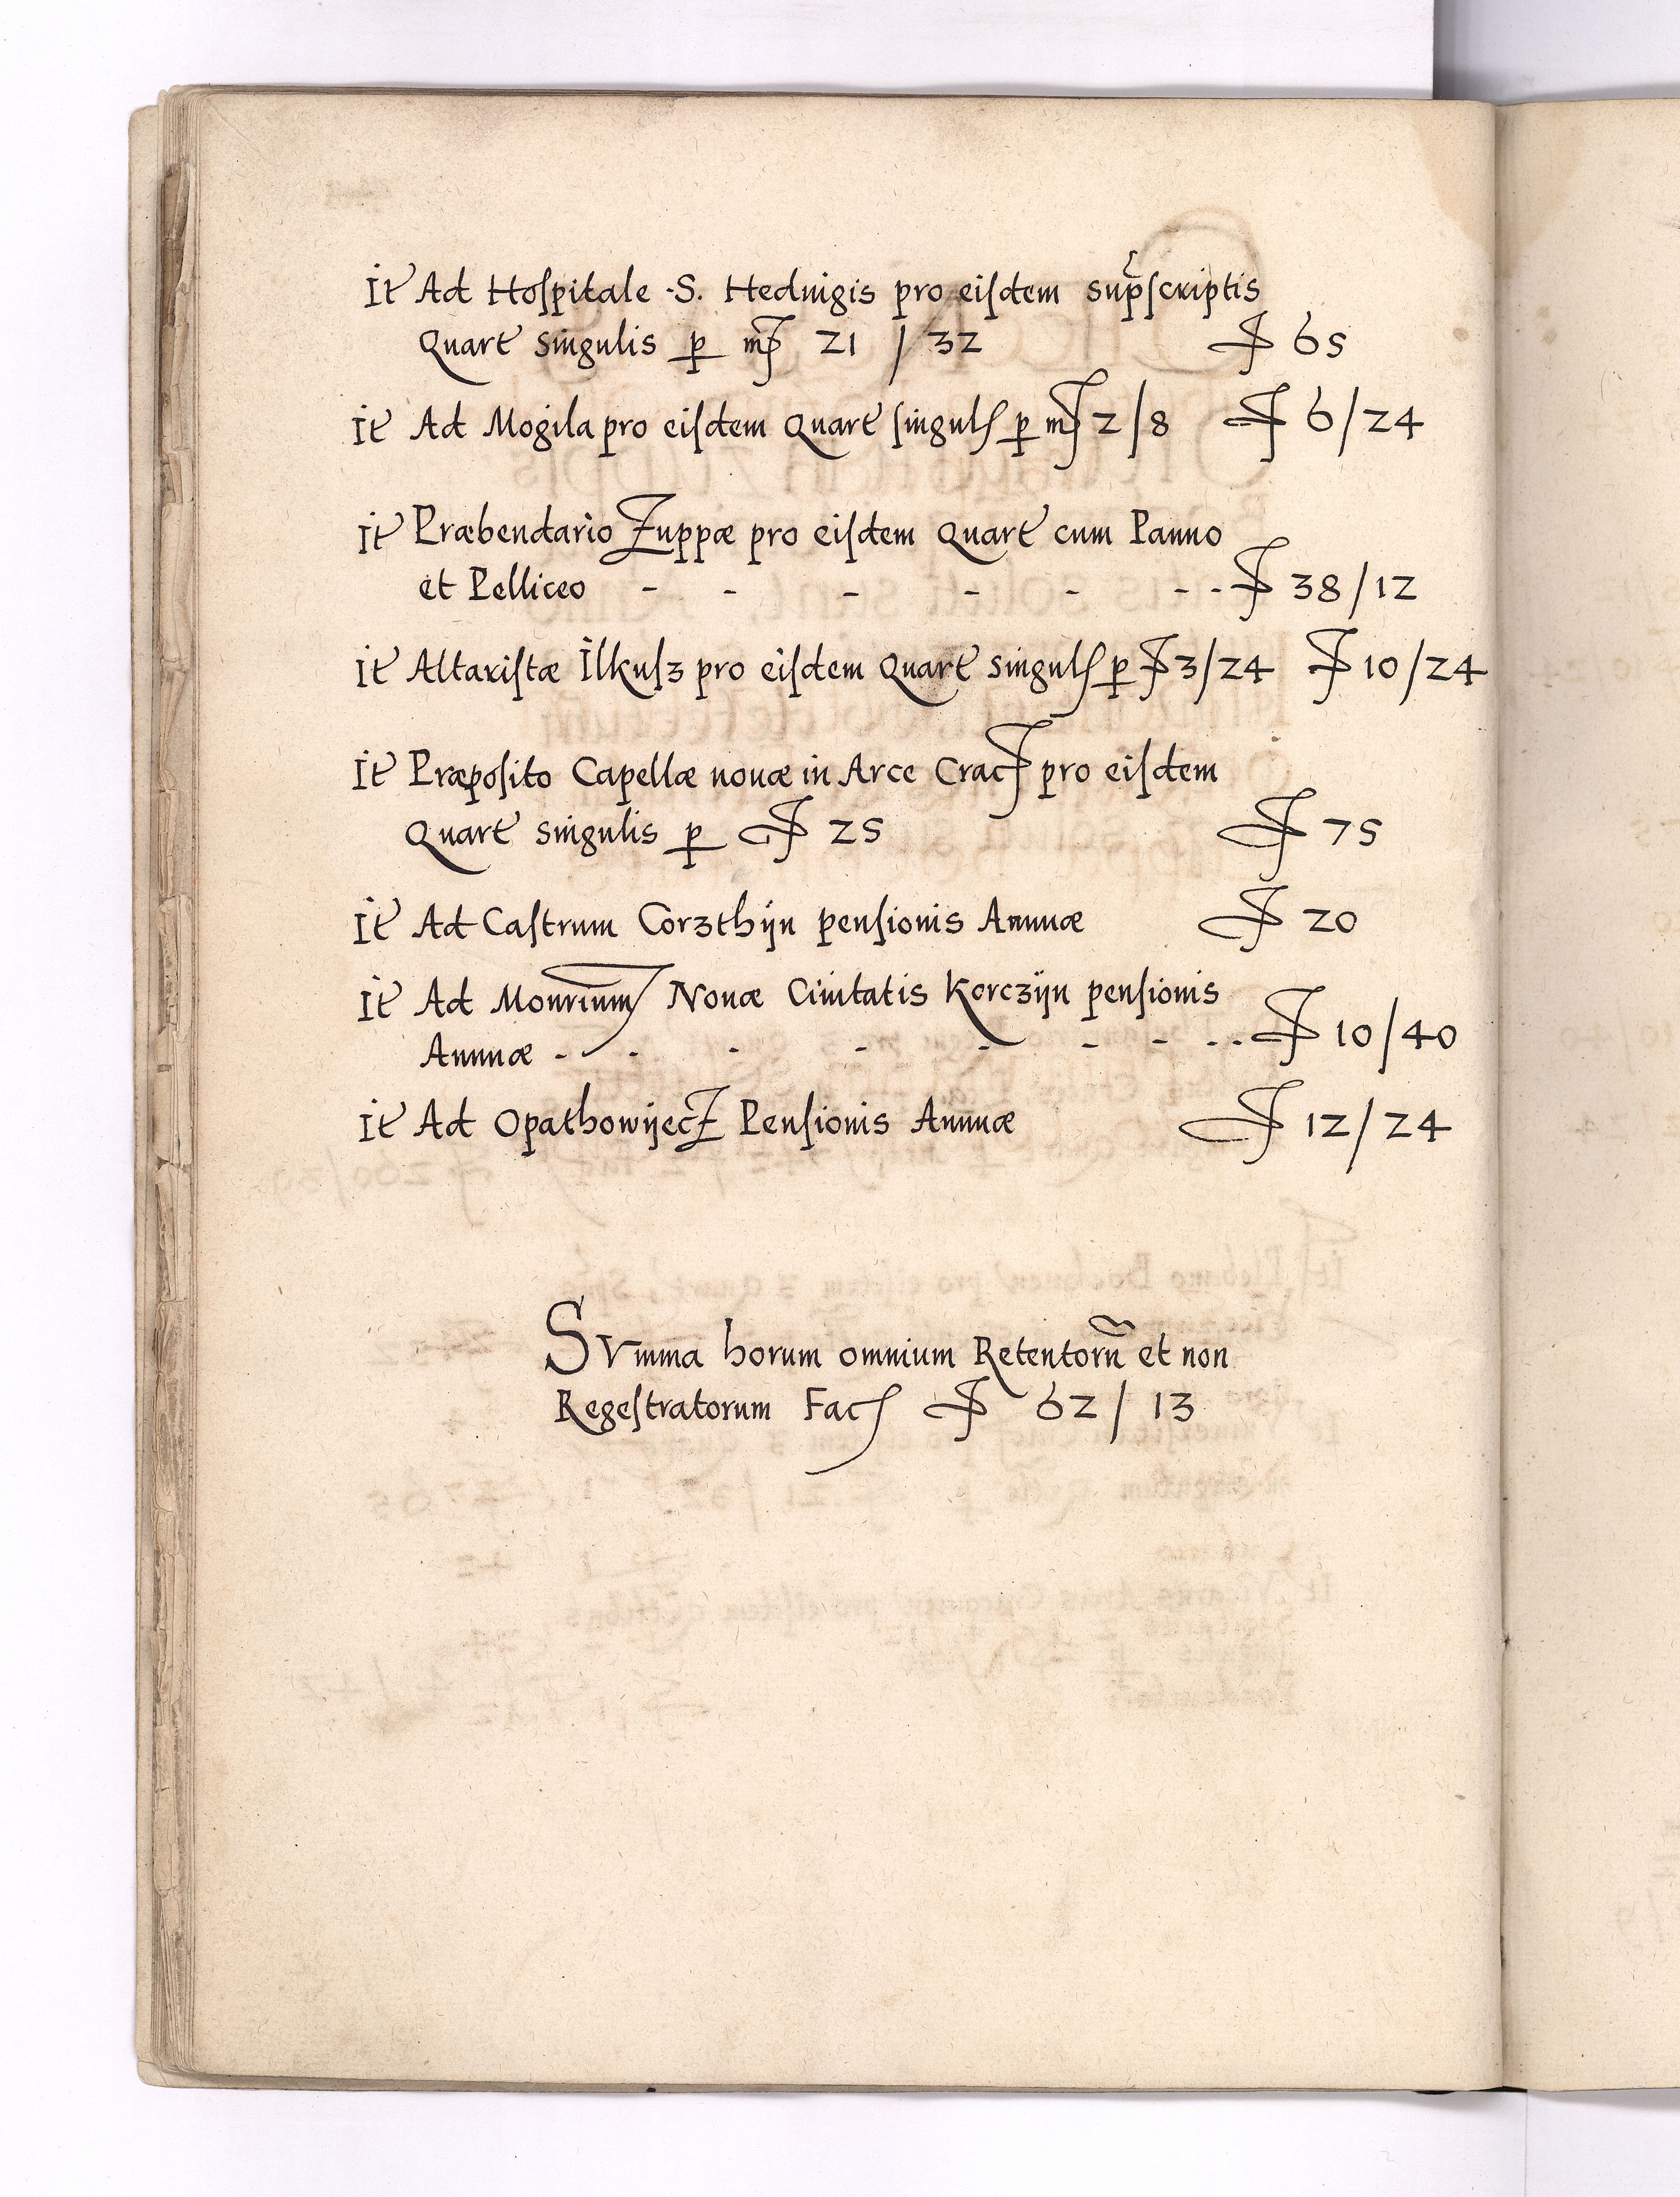 It Ad Hoſpitale S. Heduigis pro eiſdem supſcriptis
Quart singulis p mſ 21 / 32 ƒ 65
It Ad Mogila pro eiſdem Quart ſingul p mſ 2/8 ƒ 6/24
It Præbendario Zuppæ pro eiſdem Quart cum Panno
et Pelliceo - - - - - - - ƒ 38/12
It Altariſtæ Ilkuſz pro eiſdem Quart singul p ƒ 3/24 ƒ 10/24
It Præpoſito Capellæ nouæ in Arce Crac pro eiſdem
Quart singulis p ƒ 25 ƒ 75
It Ad Caſtrum Corzthijn penſionis Annuæ ƒ 20
It Ad Monrium Nouæ Ciuitatis Korczijn penſionis
Annuæ - - - - - - - - - ƒ 10/40
It Ad Opathowijecz Penſionis Annuæ ƒ 12/24
SVmma horum omnium Retentorũ et non
Regeſtratorum Fac ƒ 62 / 13